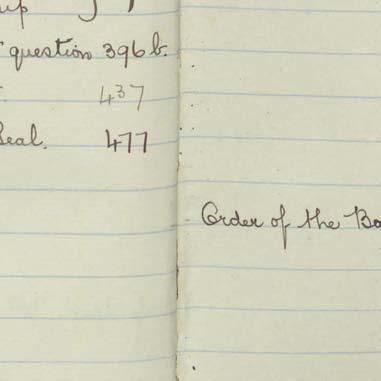 up
question 396 b.
437
Seal. 477
Order of the Bo